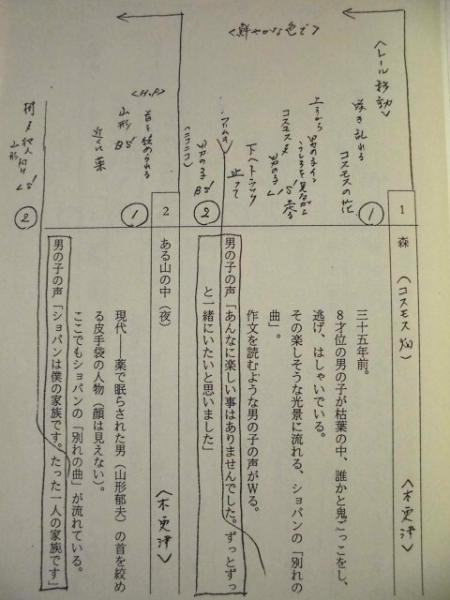 <鮮やかな色で>
<レール移動>
咲き乱れる
コスモスの花
①
1 森
(コスモス畑)
<木更津>
三十五年前。
8才位の男の子が枯葉の中、誰かと鬼ごっこをし、
逃げ、はしゃいでいる。
その楽しそうな光景に流れる、ショパンの「別れの
曲」。
作文を読むような男の子の声がWる。
上手から
男の子イン
うしろを見ながら
コスモスヌ
男の子 LS
下へトラック
止って
②
男の子 BS
(ニコニコ)
男の子の声「あんなに楽しい事はありませんでした。ずっとずっ
と一緒にいたいと思いました」
2 ある山の中(夜)
<木更津>
①
首を絞められる
山形 BS
近くに薬
現代――薬で眠らされた男(山形郁夫)の首を絞め
る皮手袋の人物(顔は見えない)。
ここでもショパンの「別れの曲」が流れている。
②
犯人
山形 LS
男の子の声「ショパンは僕の家族です。たった一人の家族です」